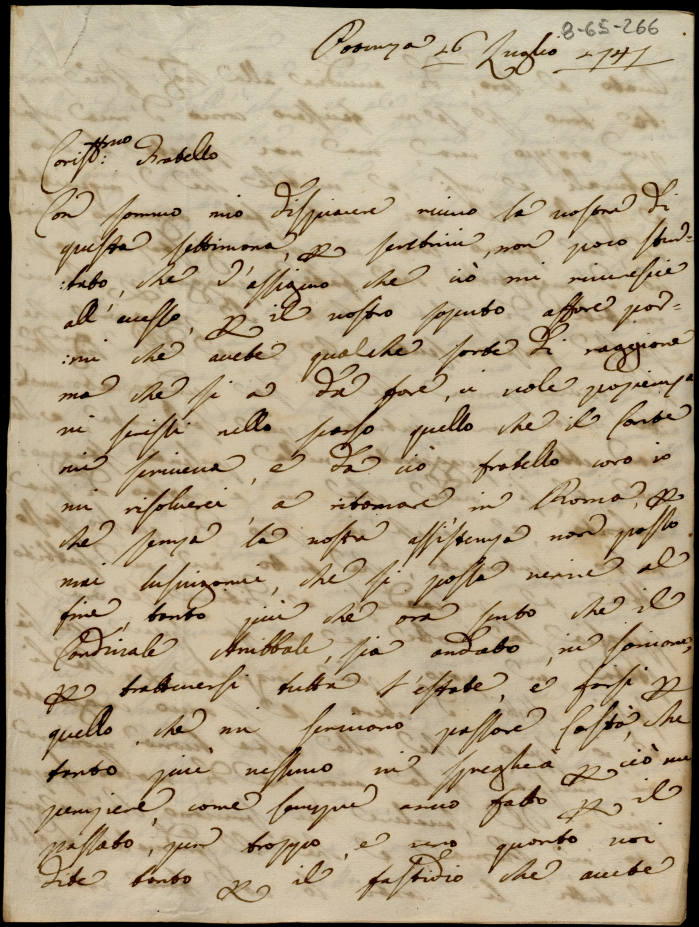 8-65-266
26 Luglio 1747
Carissmo: Fratello
Con sommo mio dispiacere ricevo la vostra di
questa settimana, non poco stur-
:bato, che v'assicuro che ciò mi rincresce
all'eccesso, il vostro affare par-
:mi che avete qualche sorte di raggione
ma che si a da fare, ci vole pazienza
vi scrissi nello scorso quello che il Conte
mi scriveva, e da ciò fratello caro io
mi risolverei, a ritornare in Roma,
che senza la vostra assistenza non posso
mai lusingarmi, che si possa venire al
fine, tanto più che ora sento che il
Cardinale Annibale, sia andato, in
trattenersi tutta l'estate, e forsi
quello che mi scrivano passare costà, che
tanto più nessuno ciò
pensiere, come sempre anno fatto il
passato, pur troppo, è vero quanto voi
dite tanto il fastidio che avete